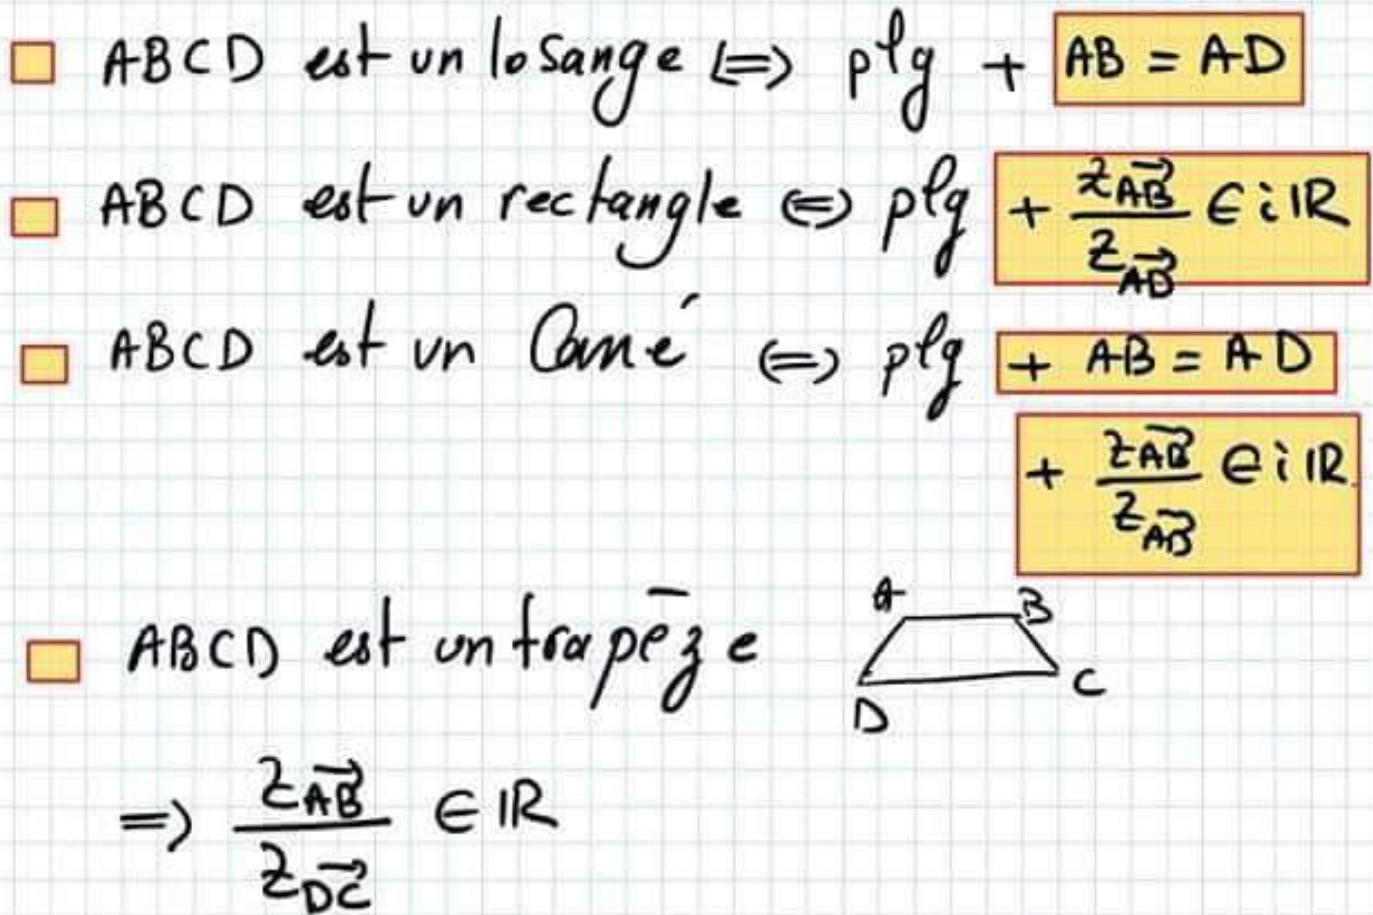 ABCD est un losange <=> plg + AB = AD
ABCD est un rectangle <=> plg + z_AB→ / z_AD→ ∈ iℝ
ABCD est un Carré <=> plg + AB = AD
+ z_AB→ / z_AD→ ∈ iℝ
ABCD est un trapèze
A B
D C
=> z_AB→ / z_DC→ ∈ ℝ